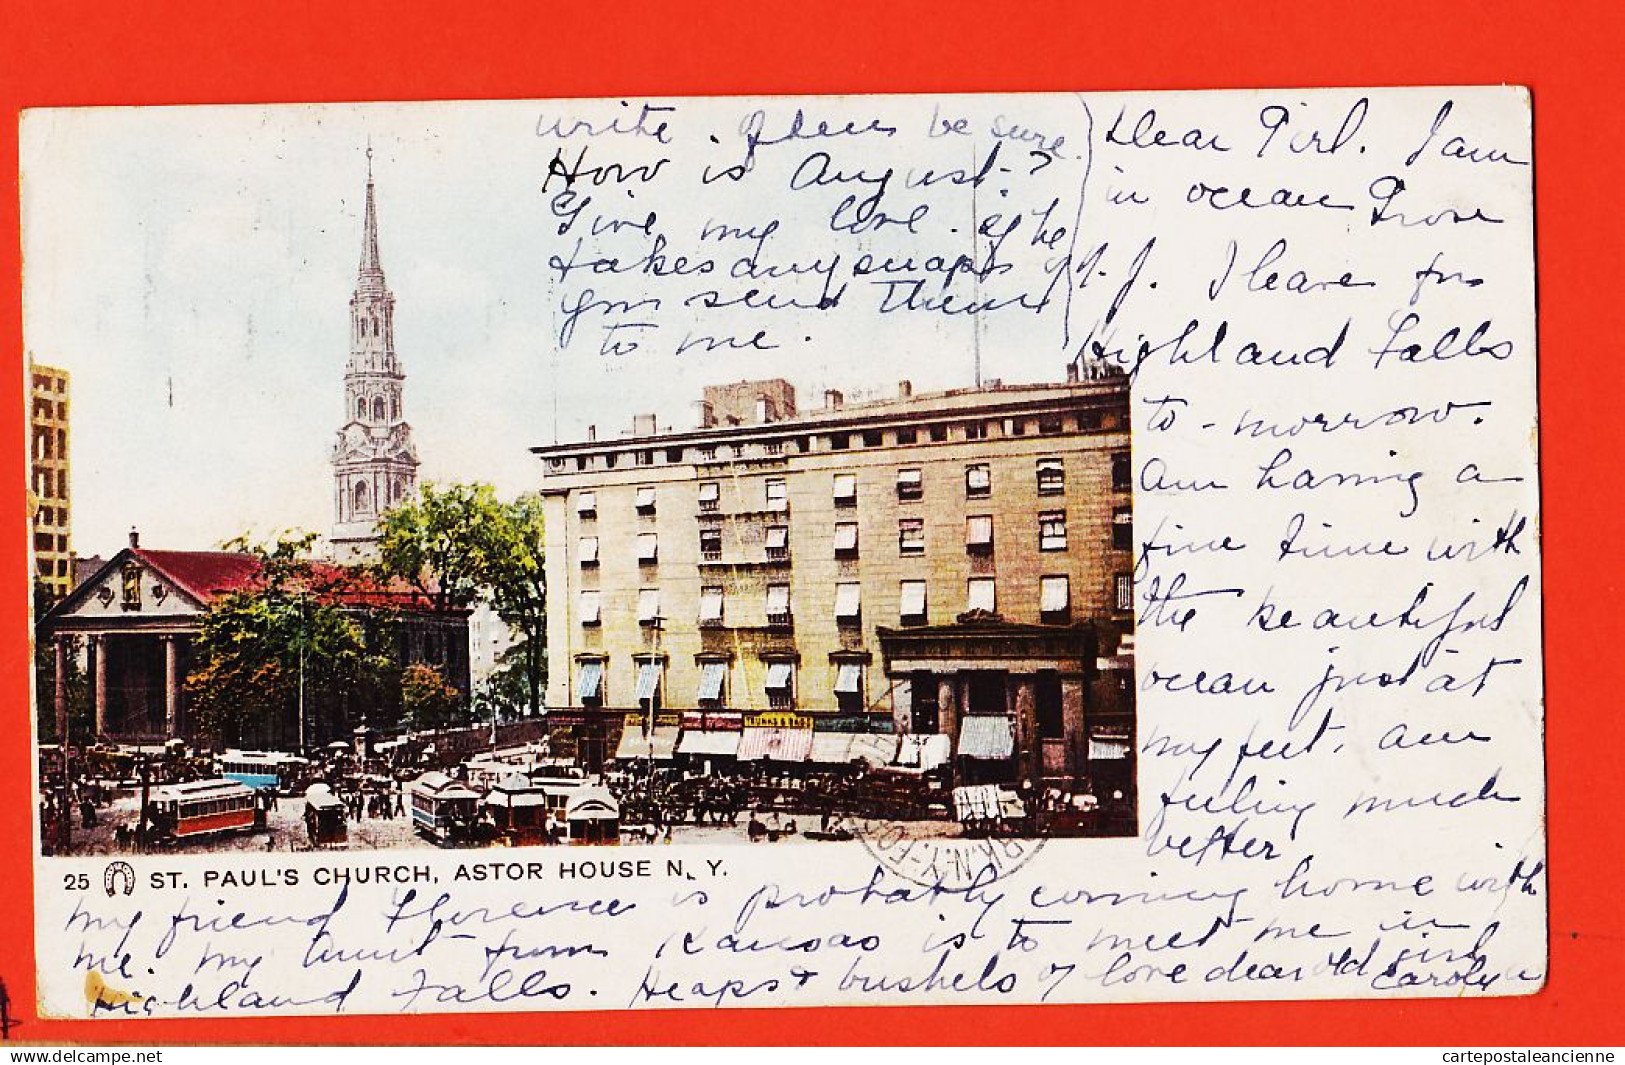 Dear Girl. I am
in ocean Grove
N. J. I leave for
Highland Falls
to-morrow.
Am having a
fine time with
the beautiful
ocean just at
my feet. Am
feeling much
better
My friend Florence is probably coming home with
me. My Aunt from Kansas is to meet me in
Highland Falls. Heaps & bushels of love dear old girl
Carolyn
write. often be sure.
How is August?
Give my love. if he
takes any snaps of
you send them
to me.
TRUNKS & BAGS
25 ST. PAUL'S CHURCH, ASTOR HOUSE N. Y.
cartepostaleancienne